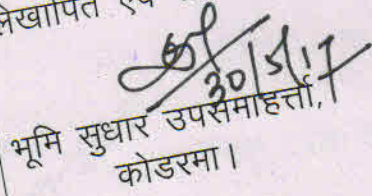 लेखापित एवं
30/5/17
भूमि सुधार उपसमाहर्त्ता,
कोडरमा।